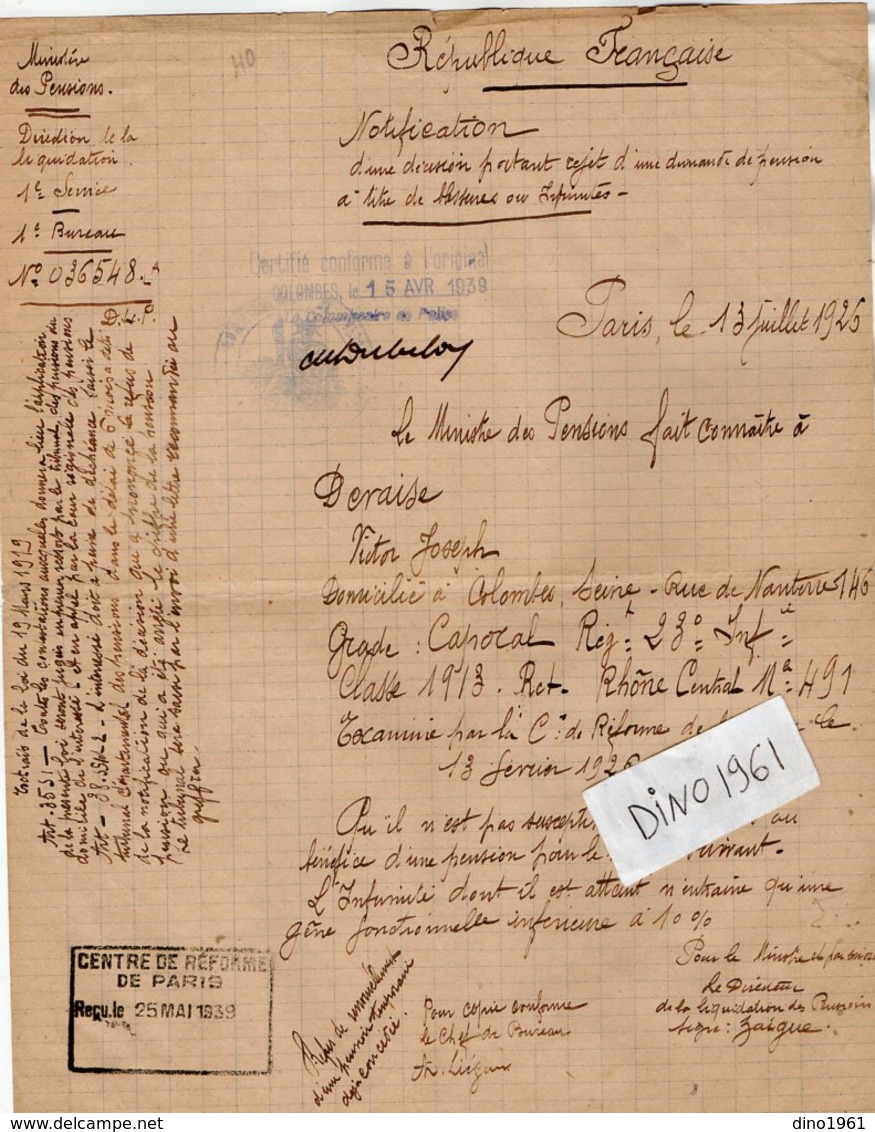 Ministère
des Pensions.
Direction de la
liquidation.
1e Service
1e Bureau
No 036548
D.L.P.
40
République Française
Notification
d'une décision portant rejet d'une demande de pension
à titre de blessures ou Infirmités -
Certifié conforme à l'original
COLOMBES, le 15 AVR 1939
Le Commissaire de Police
Paris, le 13 Juillet 1926
Le Ministre des Pensions fait connaître à
Deraise
Victor Joseph
Domicilié à Colombes, Seine - Rue de Nanterre 146
Grade : Caporal Régt 23e Inf
Classe 1913. Ret. Rhône Central No 491
Examiné par la Con de Réforme de le
13 février 1926
Qu'il n'est pas au
bénéfice d'une pension pour le
L'Infirmité dont il est atteint n'entraine qu'une
gêne fonctionnelle inférieure à 10%
DINO1961
Extrait de la loi du 19 Mars 1919
Art. 35 § 1 - Toutes les contestations auxquelles donnera lieu l'application
de la présente loi seront jugées en premier ressort par le tribunal des pensions du
domicile de l'intéressé et en appel par la cour régionale des pensions
Art - 38 - L'intéressé doit à peine de déchéance saisir le
tribunal départemental des pensions dans le délai de 6 mois à
de la notification de la décision qui a prononcé le refus de
pension ou qui a été le chiffre de la pension
Le tribunal sera saisi par l'envoi d'une lettre recommandée au
greffier.
CENTRE DE RÉFORME
DE PARIS
Reçu le 25 MAI 1939
Refus de renouvellement
d'une pension temporaire
déjà concédée.
Pour copie conforme
le Chef de Bureau
Pour le Ministre et par
Le Directeur
de la liquidation des Pensions
signé :
dino1961